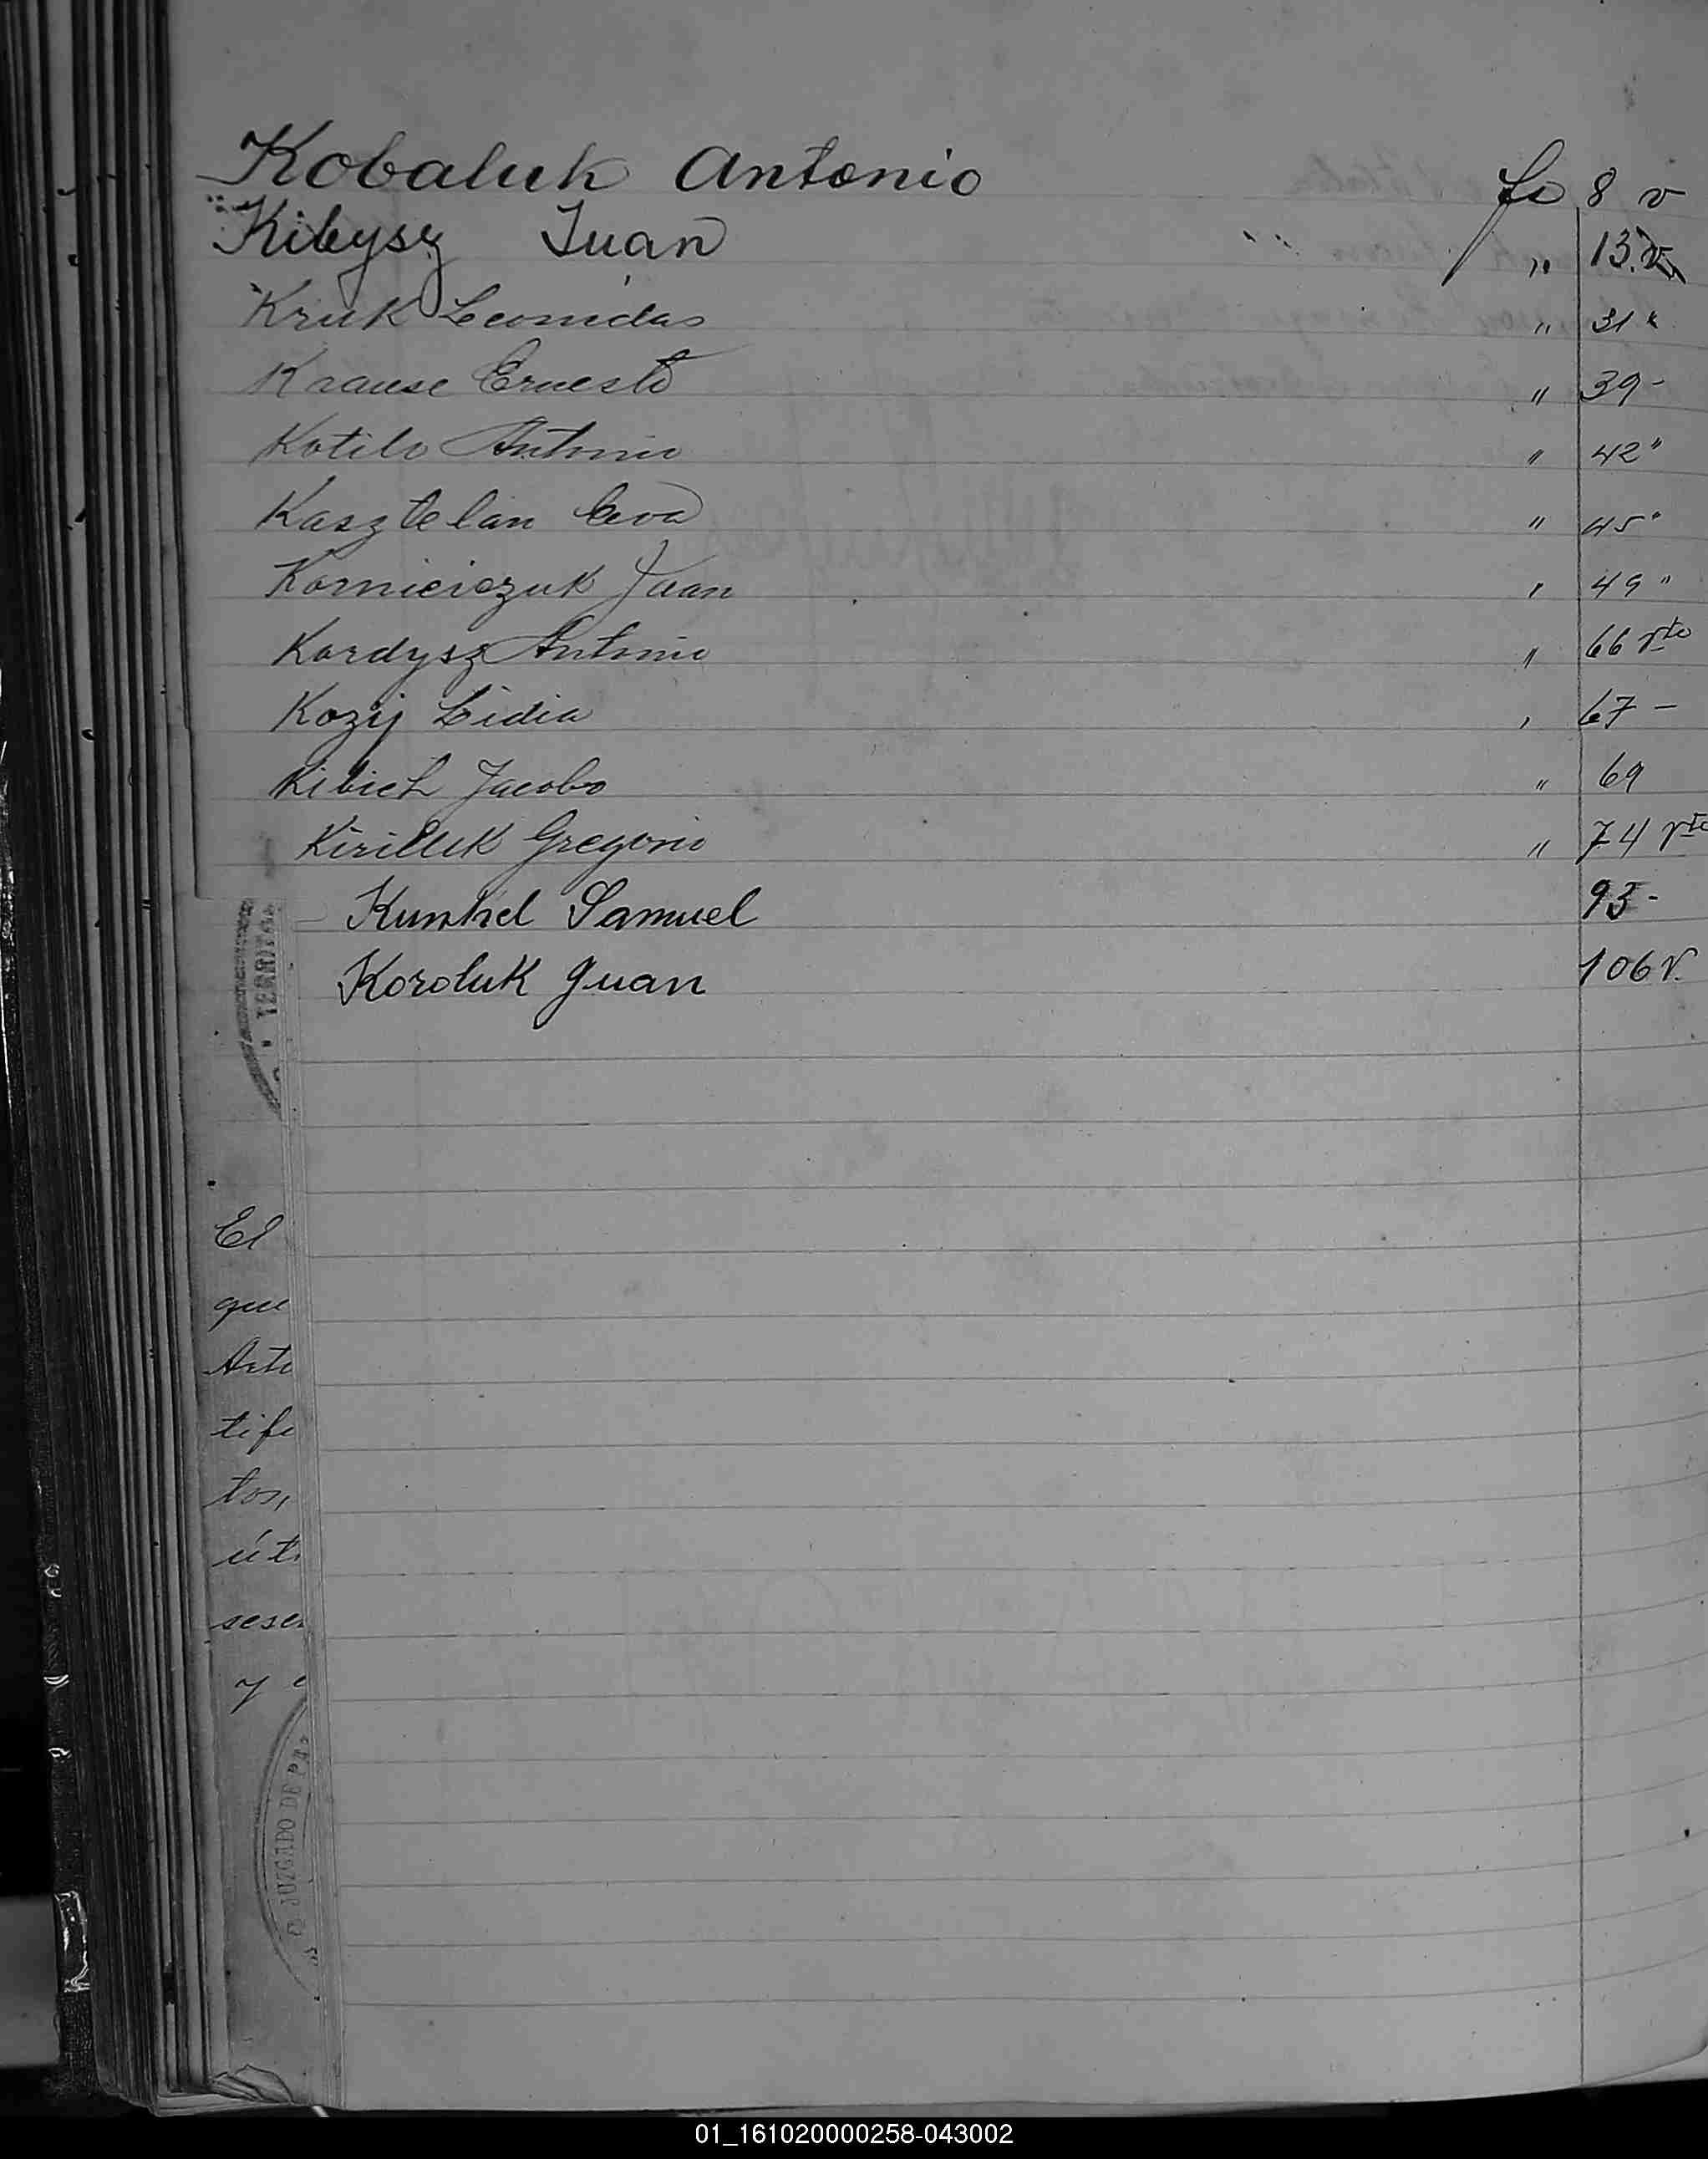 Kobaluk Antonio fo 8 v
Kibysz Juan " 13 v
Kruk Leonidas " 31 "
Krause Ernesto " 39 -
Kotilo Antonio " 42 "
Kasztelan Eva " 45 "
Kornieiczuk Juan " 49 "
Kordysz Antonio " 66 vto
Kozij Lidia " 67 -
Kibich Jacobo " 69
Kiriluk Gregorio " 74 vto
Kunkel Samuel 93 -
Koroluk Juan 106 v.
TERRITO
El
que
Arto
tifi
tos,
úti
sese
y
JUZGADO DE PAZ
01_161020000258-043002